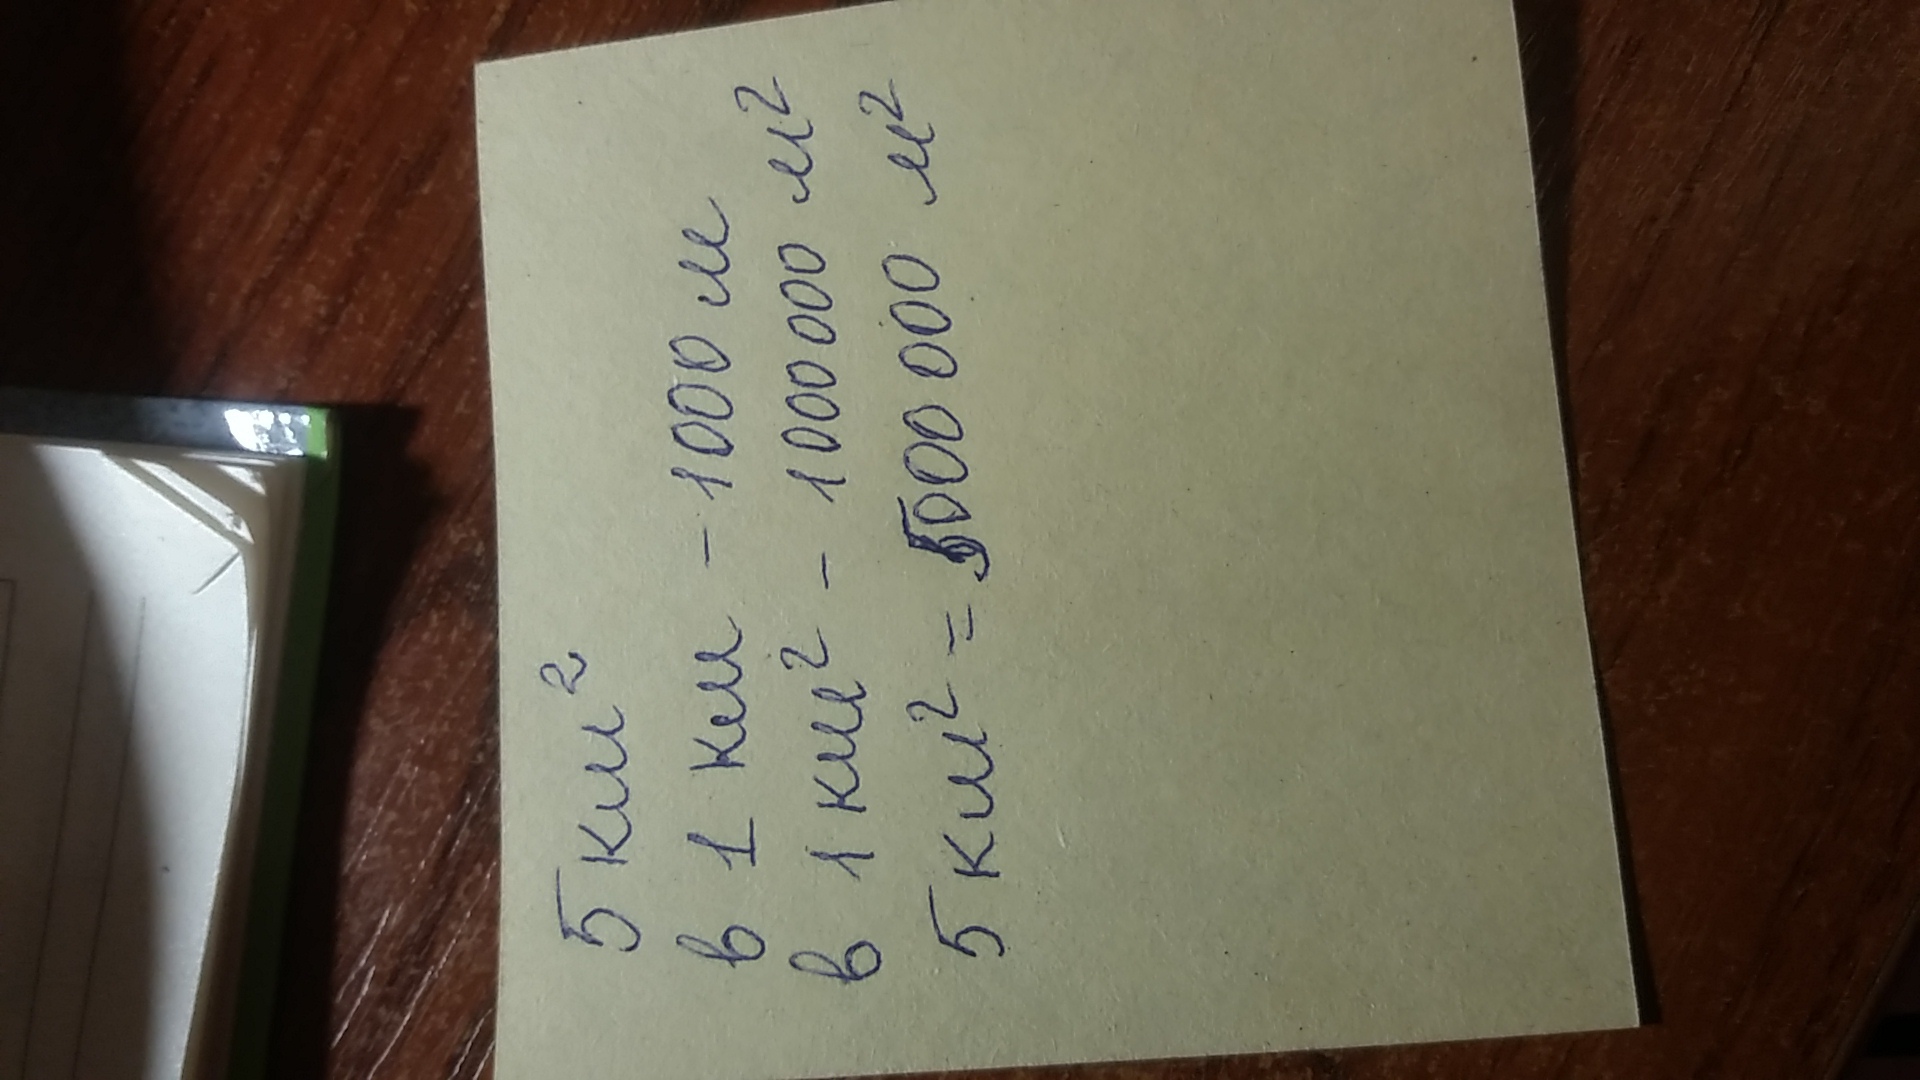 5 км²
в 1 км - 1000 м
в 1 км² - 1000 000 м²
5 км² = 5000 000 м²